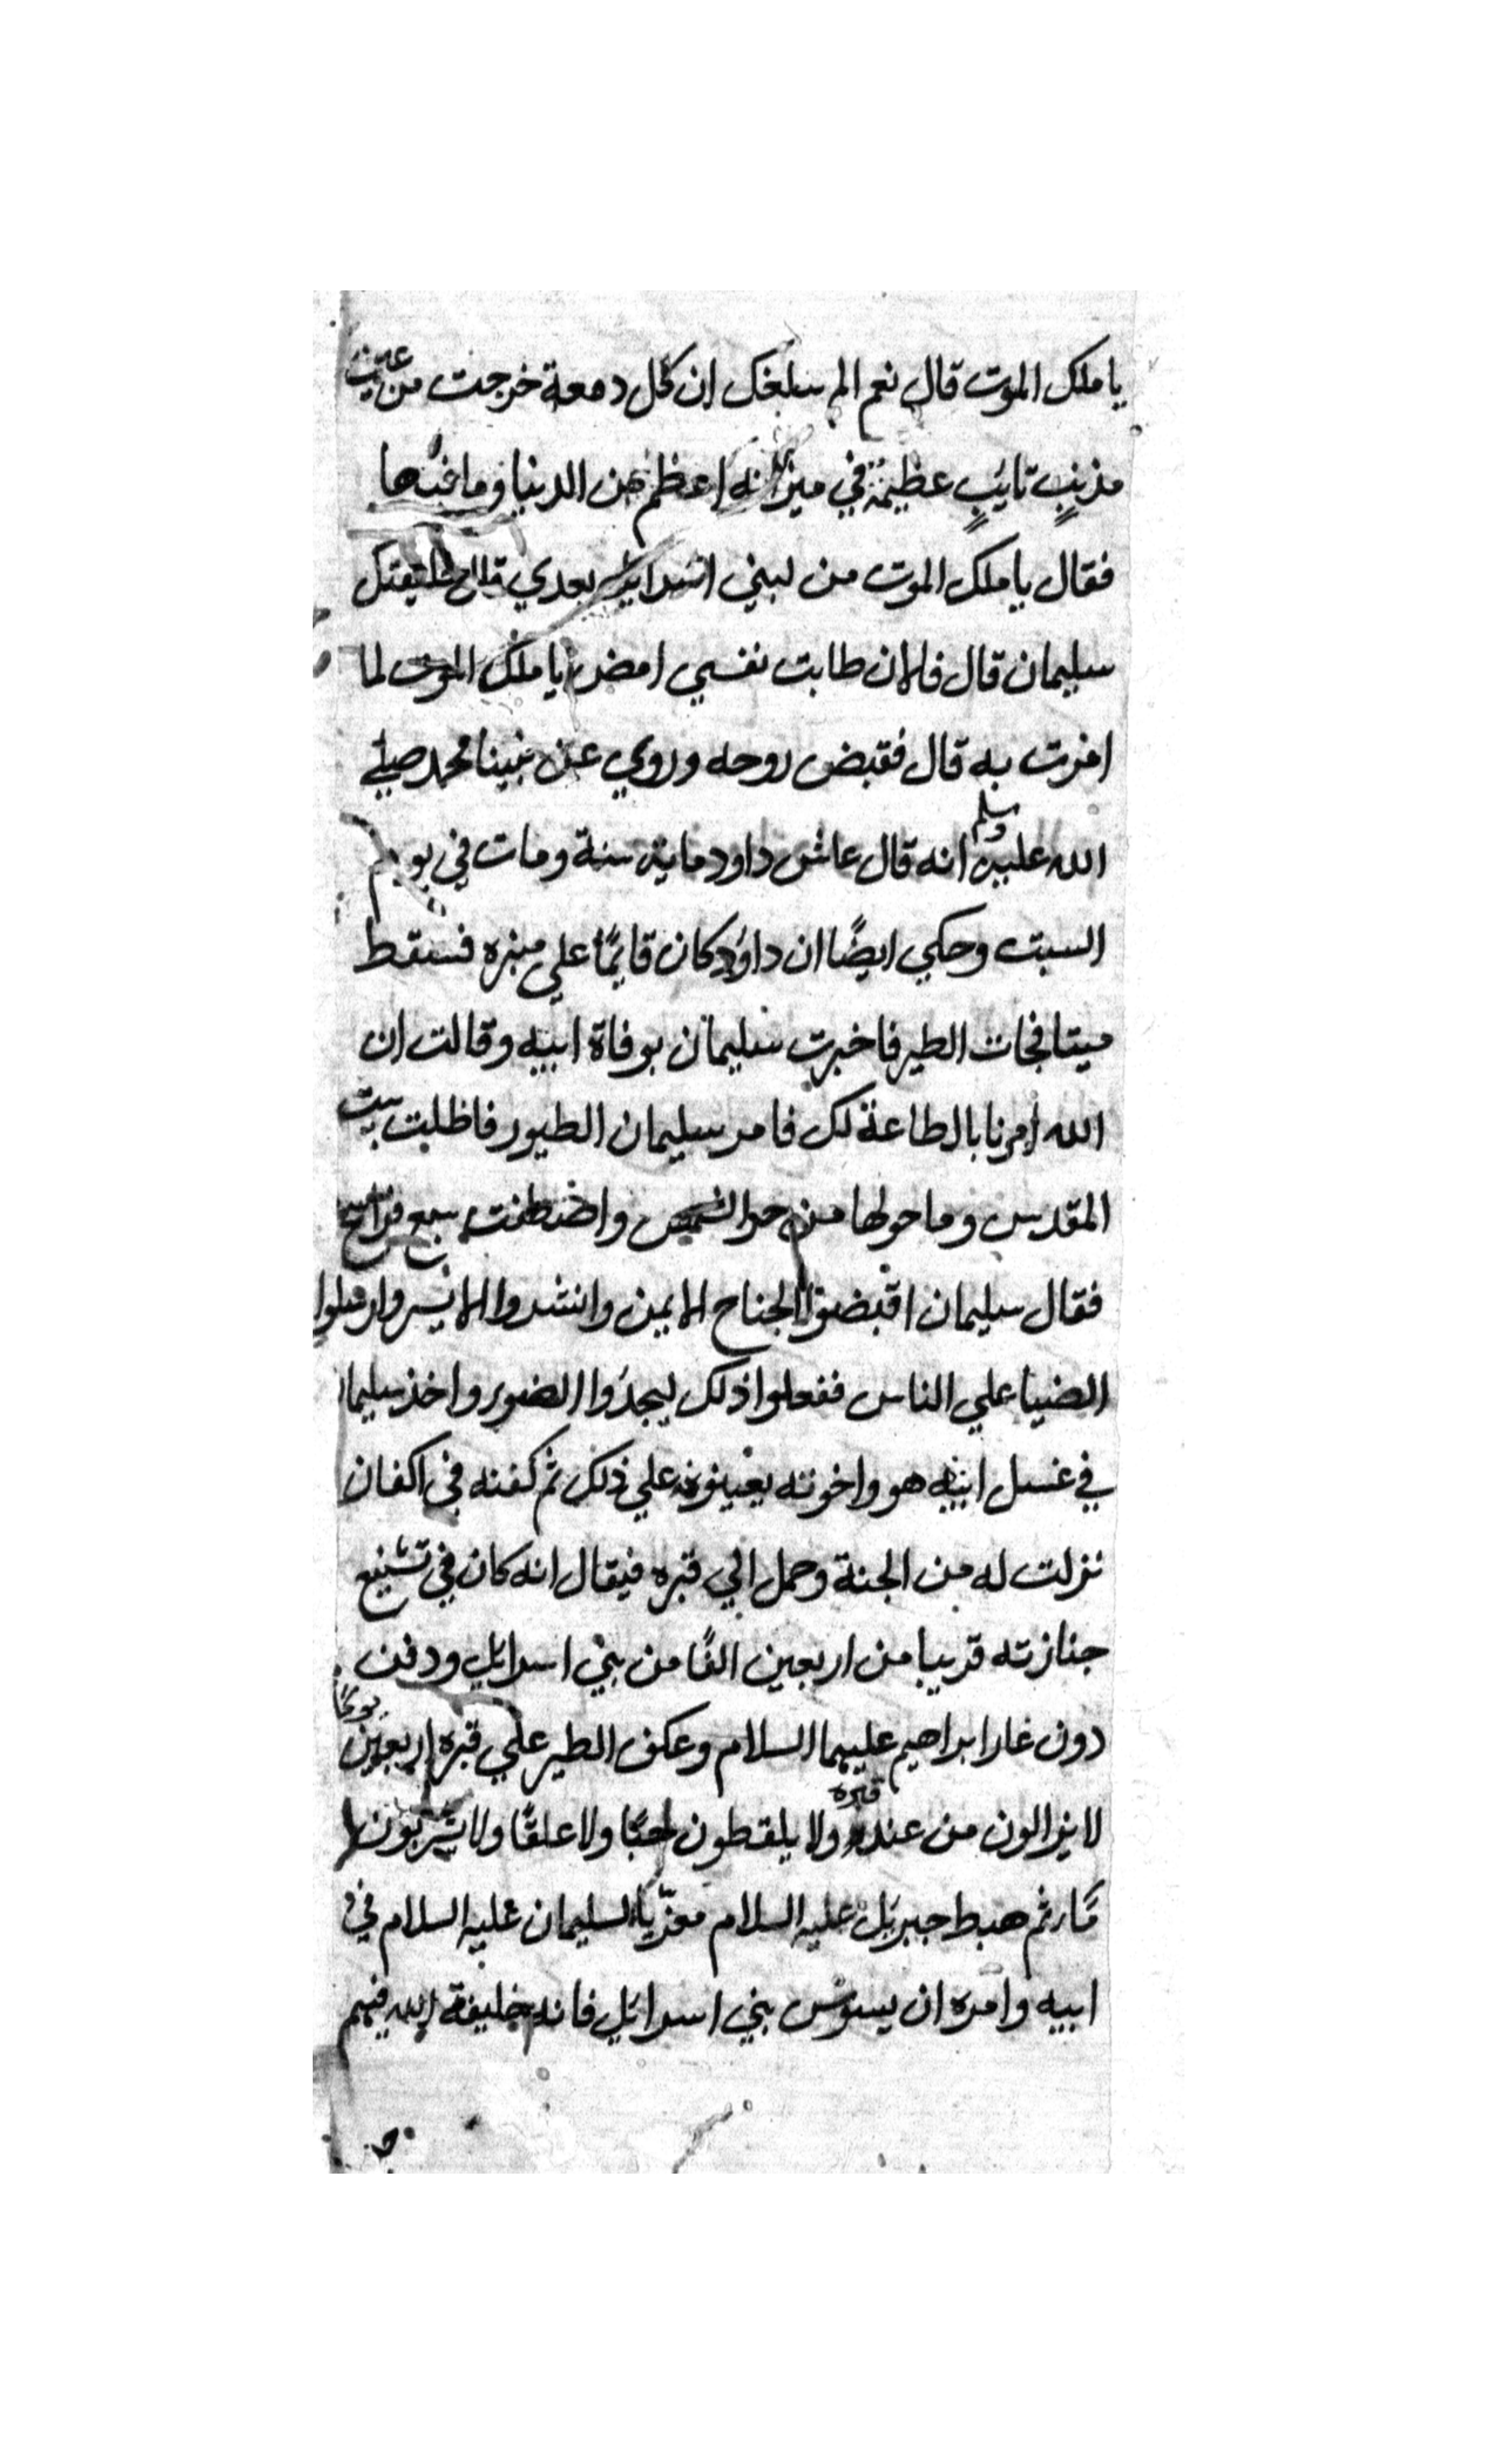 يا ملك الموت قال نعم الم يبلغك ان كل دمعة خرجت من عين
مذنب تايب عظيمة في ميزانه اعظم من الدنيا وما فيها
فقال يا ملك الموت من لبني اسرايل بعدي قال خليفتك
سليمان قال فالان طابت نفسي امض يا ملك الموت لما
امرت به قال فقبض روحه وروي عن نبينا محمد صلي
الله عليه وسلم انه قال عاش داود ماية سنة ومات في يوم
السبت وحكي ايضًا ان داود كان قايمًا علي منبره فسقط
ميتا فجات الطير فاخبرت سليمان بوفاة ابيه وقالت ان
الله امرنا بالطاعة لك فامر سليمان الطيور فاظلت بيت
المقدس وما حولها من حر الشمس
فقال سليمان اقبضوا الجناح الايمن وانشروا الايسر وارسلوا
الضيا علي الناس ففعلوا ذلك ليجدوا الضو واخذ سليمان
في غسل ابيه هو واخوته يعينونه علي ذلك ثم كفنه في اكفان
نزلت له من الجنة وحمل الي قبره فيقال انه كان في تشييع
جنازته قريبا من اربعين الفًا من بني اسرايل ودفن
دون غار ابراهيم عليهما السلام وعكف الطير علي قبره اربعين يومًا
لا يزالون من عند قبره ولا يلقطون حبًا ولا علقًا ولا يشربون
ثم هبط جبريل عليه السلام معزّيًا لسليمان عليه السلام في
ابيه وامره ان يسوس بني اسرايل فانه خليفة الله فيهم